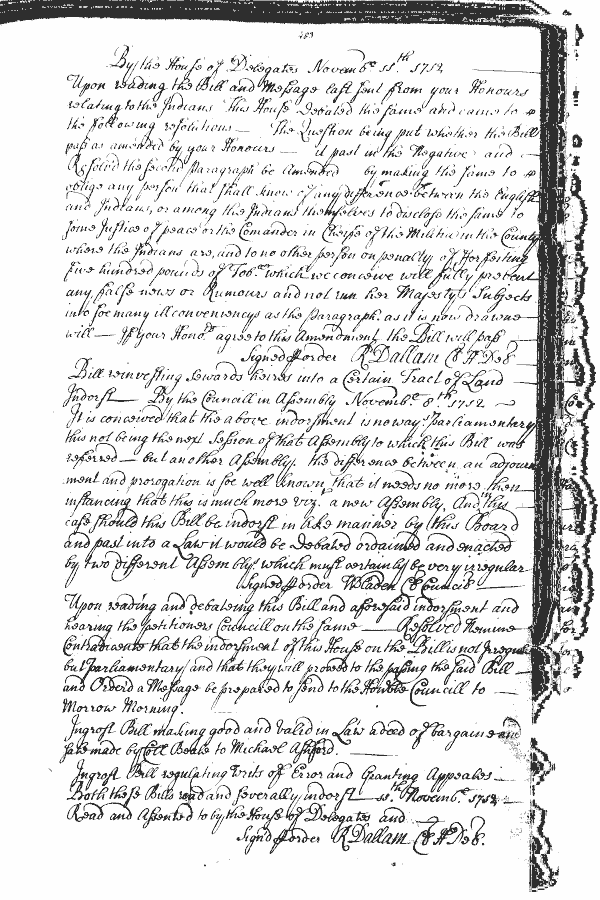 483
By the House of Delegates Novemb.r 11.th 1712
Upon reading the Bill and Message last sent from your Honours
relating to the Indians this House Debated the same and came to
the following resolutions — The Question being put whether the Bill
pass as amended by your Honours — it past in the Negative and —
Resolved the second Paragraph be Amended by making the same to
oblige any person that shall know of any difference between the English
and Indians, or among the Indians themselves to disclose the same to
some Justice of peace or the Comander in Cheife of the Militia in the County
where the Indians are, and to no other person on penalty of Forfeiting
five hundred pounds of Tob.o which we conceive will fully prevent
any false news or Rumours and not run her Majestys Subjects
into soe many ill conveniencys as the Paragraph, as it is now drawne
will — If your Hono.rs agree to this Amendment the Bill will pass
Signed order R Dallam Cl H Del
Bill reinvesting Sewards heires into a Certain Tract of Land
Indorst — By the Councill in Assembly Novemb.r 8th 1712 —
It is conceived that the above indorsment is noways parliamentary
this not being the next Session of that Assembly to which this Bill was
referred — but another Assembly. the difference between an adjourn
ment and prorogation is soe well known that it needs no more then
instancing that this is much more viz. a new Assembly, And in this
case should this Bill be indorst in like manner by this Board
and past into a Law it would be Debated ordained and enacted
by two different Assembly. which must certainly be very irregular
Signed order W Bladen Cl Council
Upon reading and debateing this Bill and aforesaid indorsment and
hearing the petitioners Councill on the same — Resolved Nemine
Contradicente that the indorsment of this House on the Bill is not irregular
but parliamentary and that they will proceed to the passing the said Bill
and Orderd a Message be prepared to send to the Honble Councill to
Morrow Morning.
Ingrost Bill making good and valid in Law a deed of bargaine and
sale made by Coll Beale to Michael Ashford.
Ingrost Bill regulating writs of Error and Granting Appeales —
Both these Bills read and severally indorst — 11.th Novemb.r 1712
Read and Assented to by the House of Delegates and —
Signd order R Dallam Cl H Del.